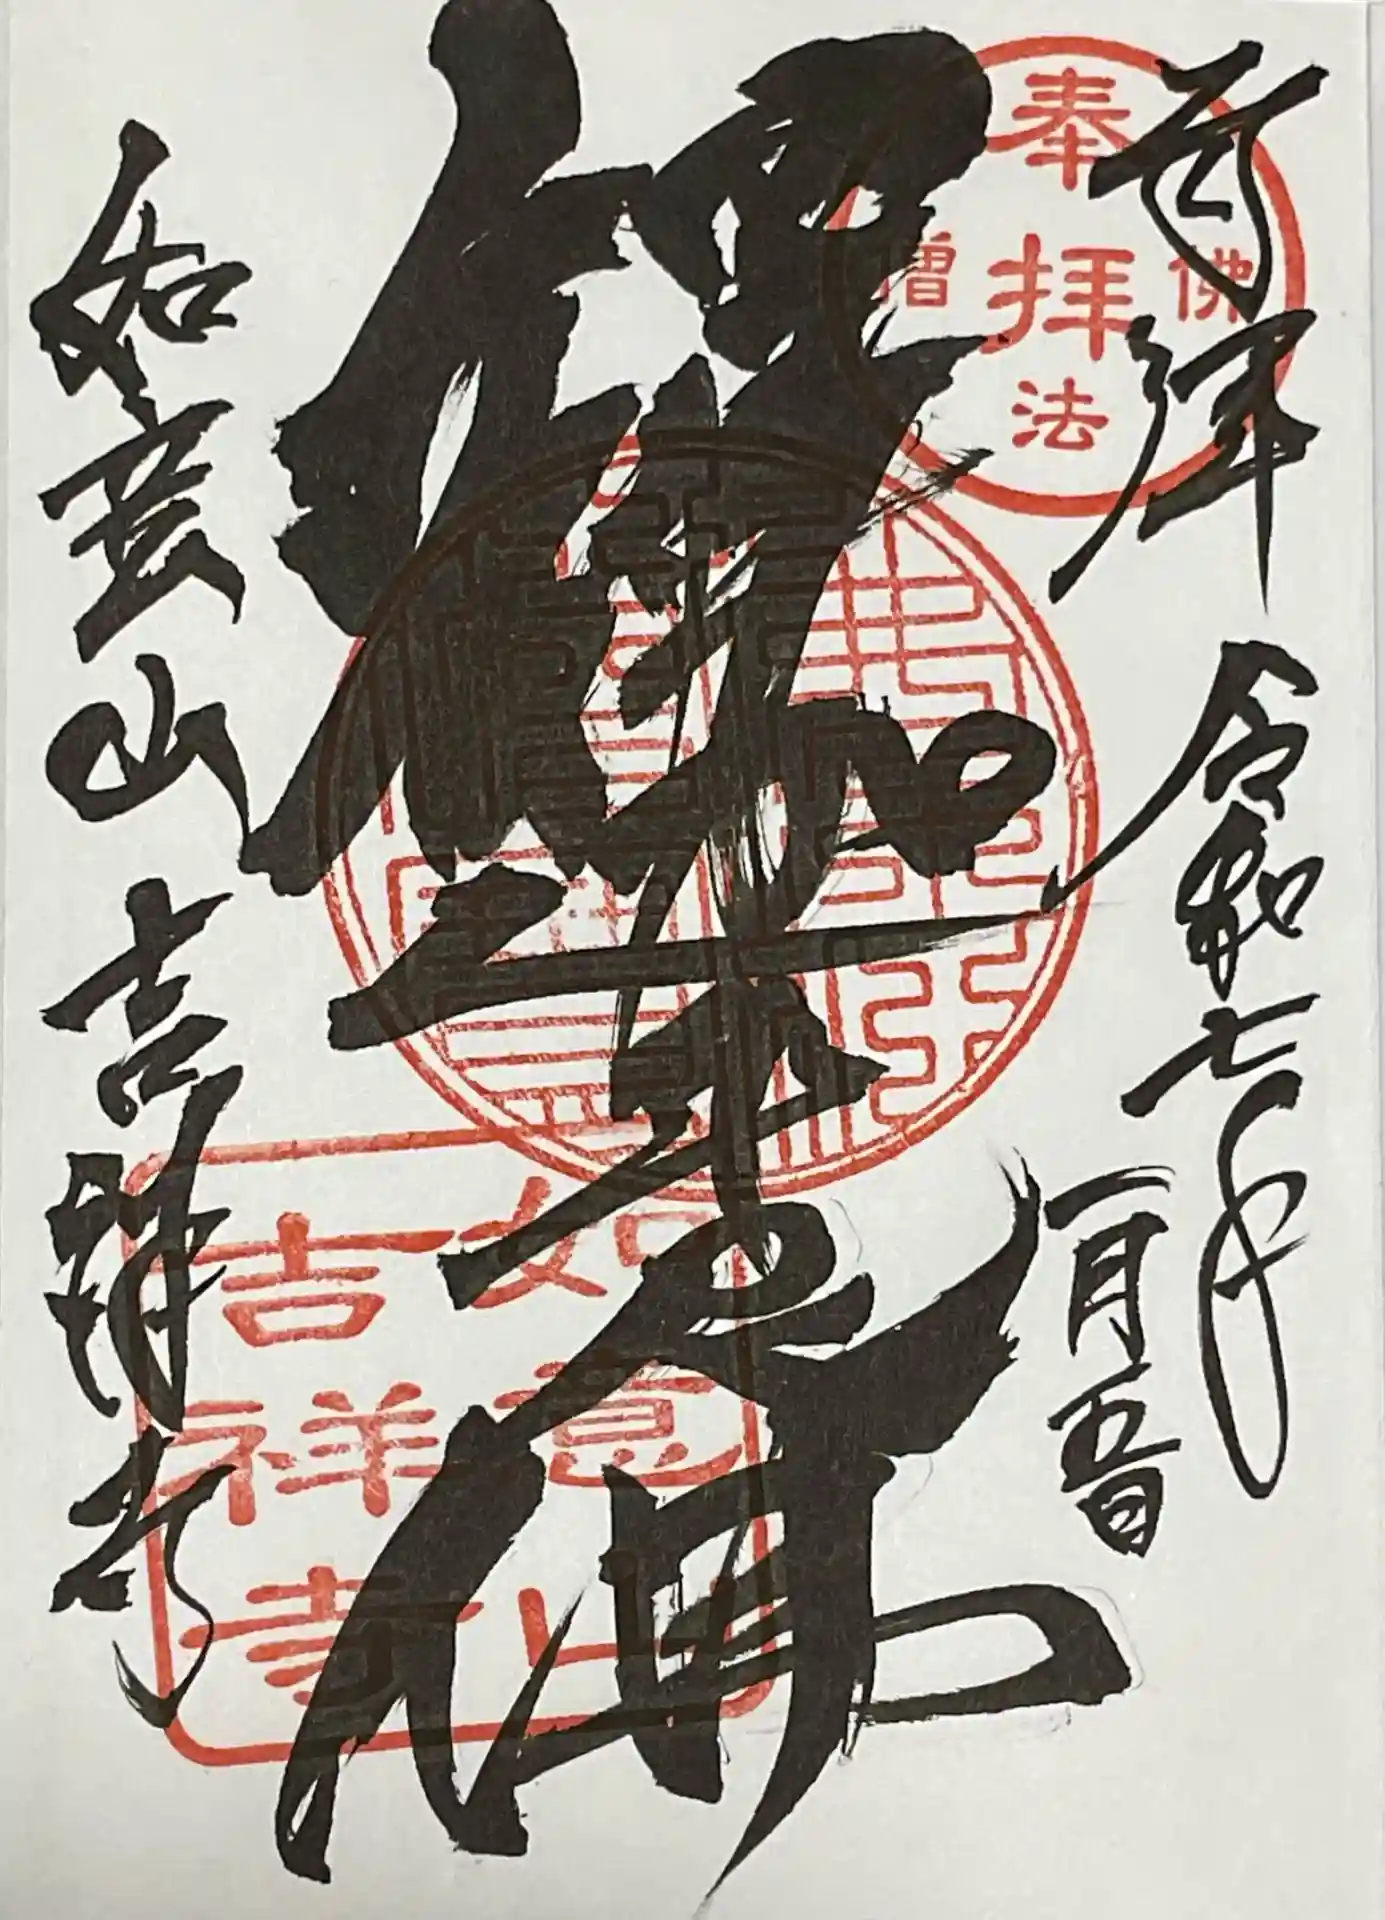 百拝
令和七年
一月五日
奉拝
佛
法
僧
釋迦牟尼佛
如意山
吉祥寺
如意山 吉祥寺